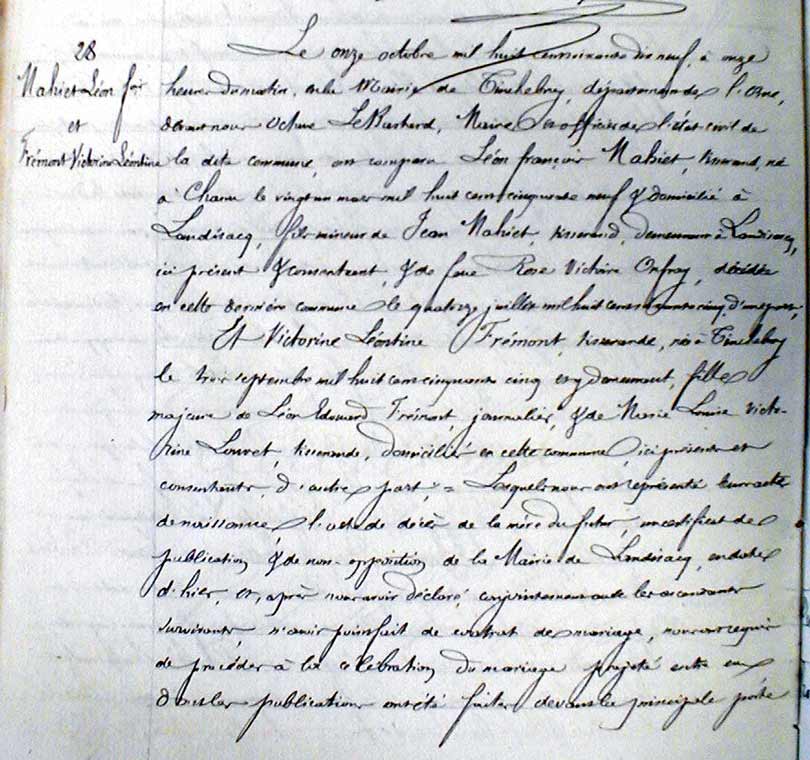 28
Mahiet Léon foi
et
Frémont Victorine Léontine
Le onze octobre mil huit cent soixante dix neuf, à onze
heures du matin, en la Mairie de Tinchebray, département de l'Orne,
devant nous Octave LeBastard, Maire et officier de l'état civil de
la dite commune, ont comparu Léon françois Mahiet, tisserand, né
à Chanu le vingt un mars mil huit cent cinquante neuf y domicilié à
Landisacq, fils mineur de Jean Mahiet, tisserand, demeurant à Landisacq,
ici présent & consentant, & de feue Rose Victoire Onfray, décédée
en cette dernière commune le quatorze juillet mil huit cent soixante cinq, d'une part,
Et Victorine Léontine Frémont, tisserande, née à Tinchebray
le trois septembre mil huit cent cinquante cinq et y demeurant, fille
majeure de Léon Edouard Frémont, journalier, & de Marie Louise Victo-
rine Louvet, tisserande, domiciliés en cette commune, ici présents et
consentants, d'autre part, = Lesquels nous ont représenté leurs actes
de naissance, l'acte de décès de la mère du futur, un certificat de
publication & de non-opposition de la Mairie de Landisacq, en date
d'hier, et, après nous avoir déclaré, conjointement avec les ascendants
survivants, n'avoir point fait de contrat de mariage, nous ont requis
de procéder à la célébration du mariage projeté entre eux
dont les publications ont été faites devant la principale porte